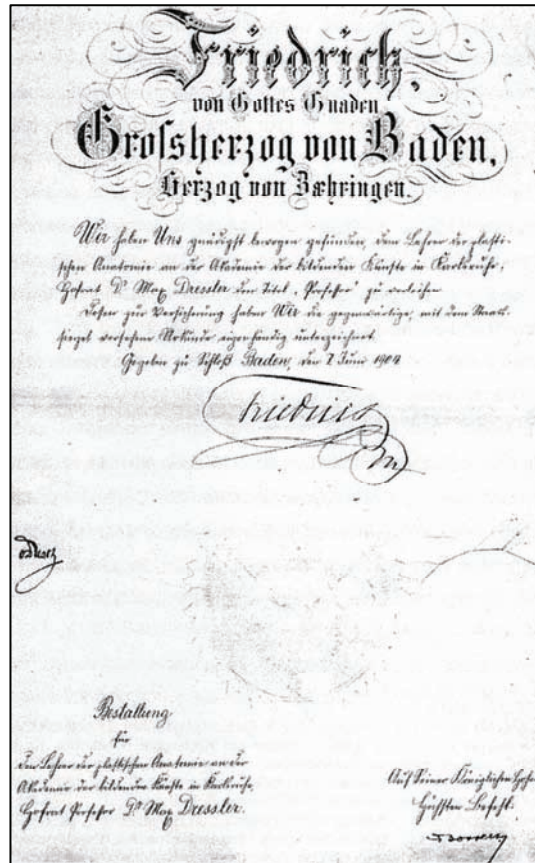 Friedrich,
von Gottes Gnaden
Grossherzog von Baden,
Herzog von Zæhringen.
Wir haben Uns gnädigst bewogen gefunden, dem Lehrer der plasti-
schen Anatomie an der Akademie der bildenden Künste in Karlsruhe,
Hofrat Dr Max Dressler den Titel „Professor" zu verleihen.
Dessen zur Versicherung haben Wir die gegenwärtige, mit dem Staats-
siegel versehene Urkunde eigenhändig unterzeichnet.
Gegeben zu Schloß Baden, den 7 Juni 1904
Friedrich
Bestallung
für
den Lehrer der plastischen Anatomie an der
Akademie der bildenden Künste in Karlsruhe,
Hofrat Professor Dr Max Dressler.
Auf Seiner Königlichen Hoheit
Höchsten Befehl.